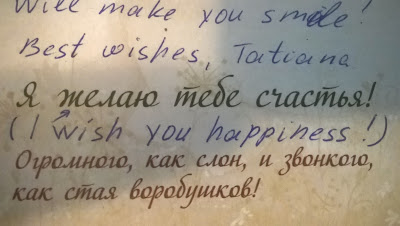 Will make you smile!
Best wishes, Tatiana
Я желаю тебе счастья!
(I wish you happiness!)
Огромного, как слон, и звонкого,
как стая воробушков!